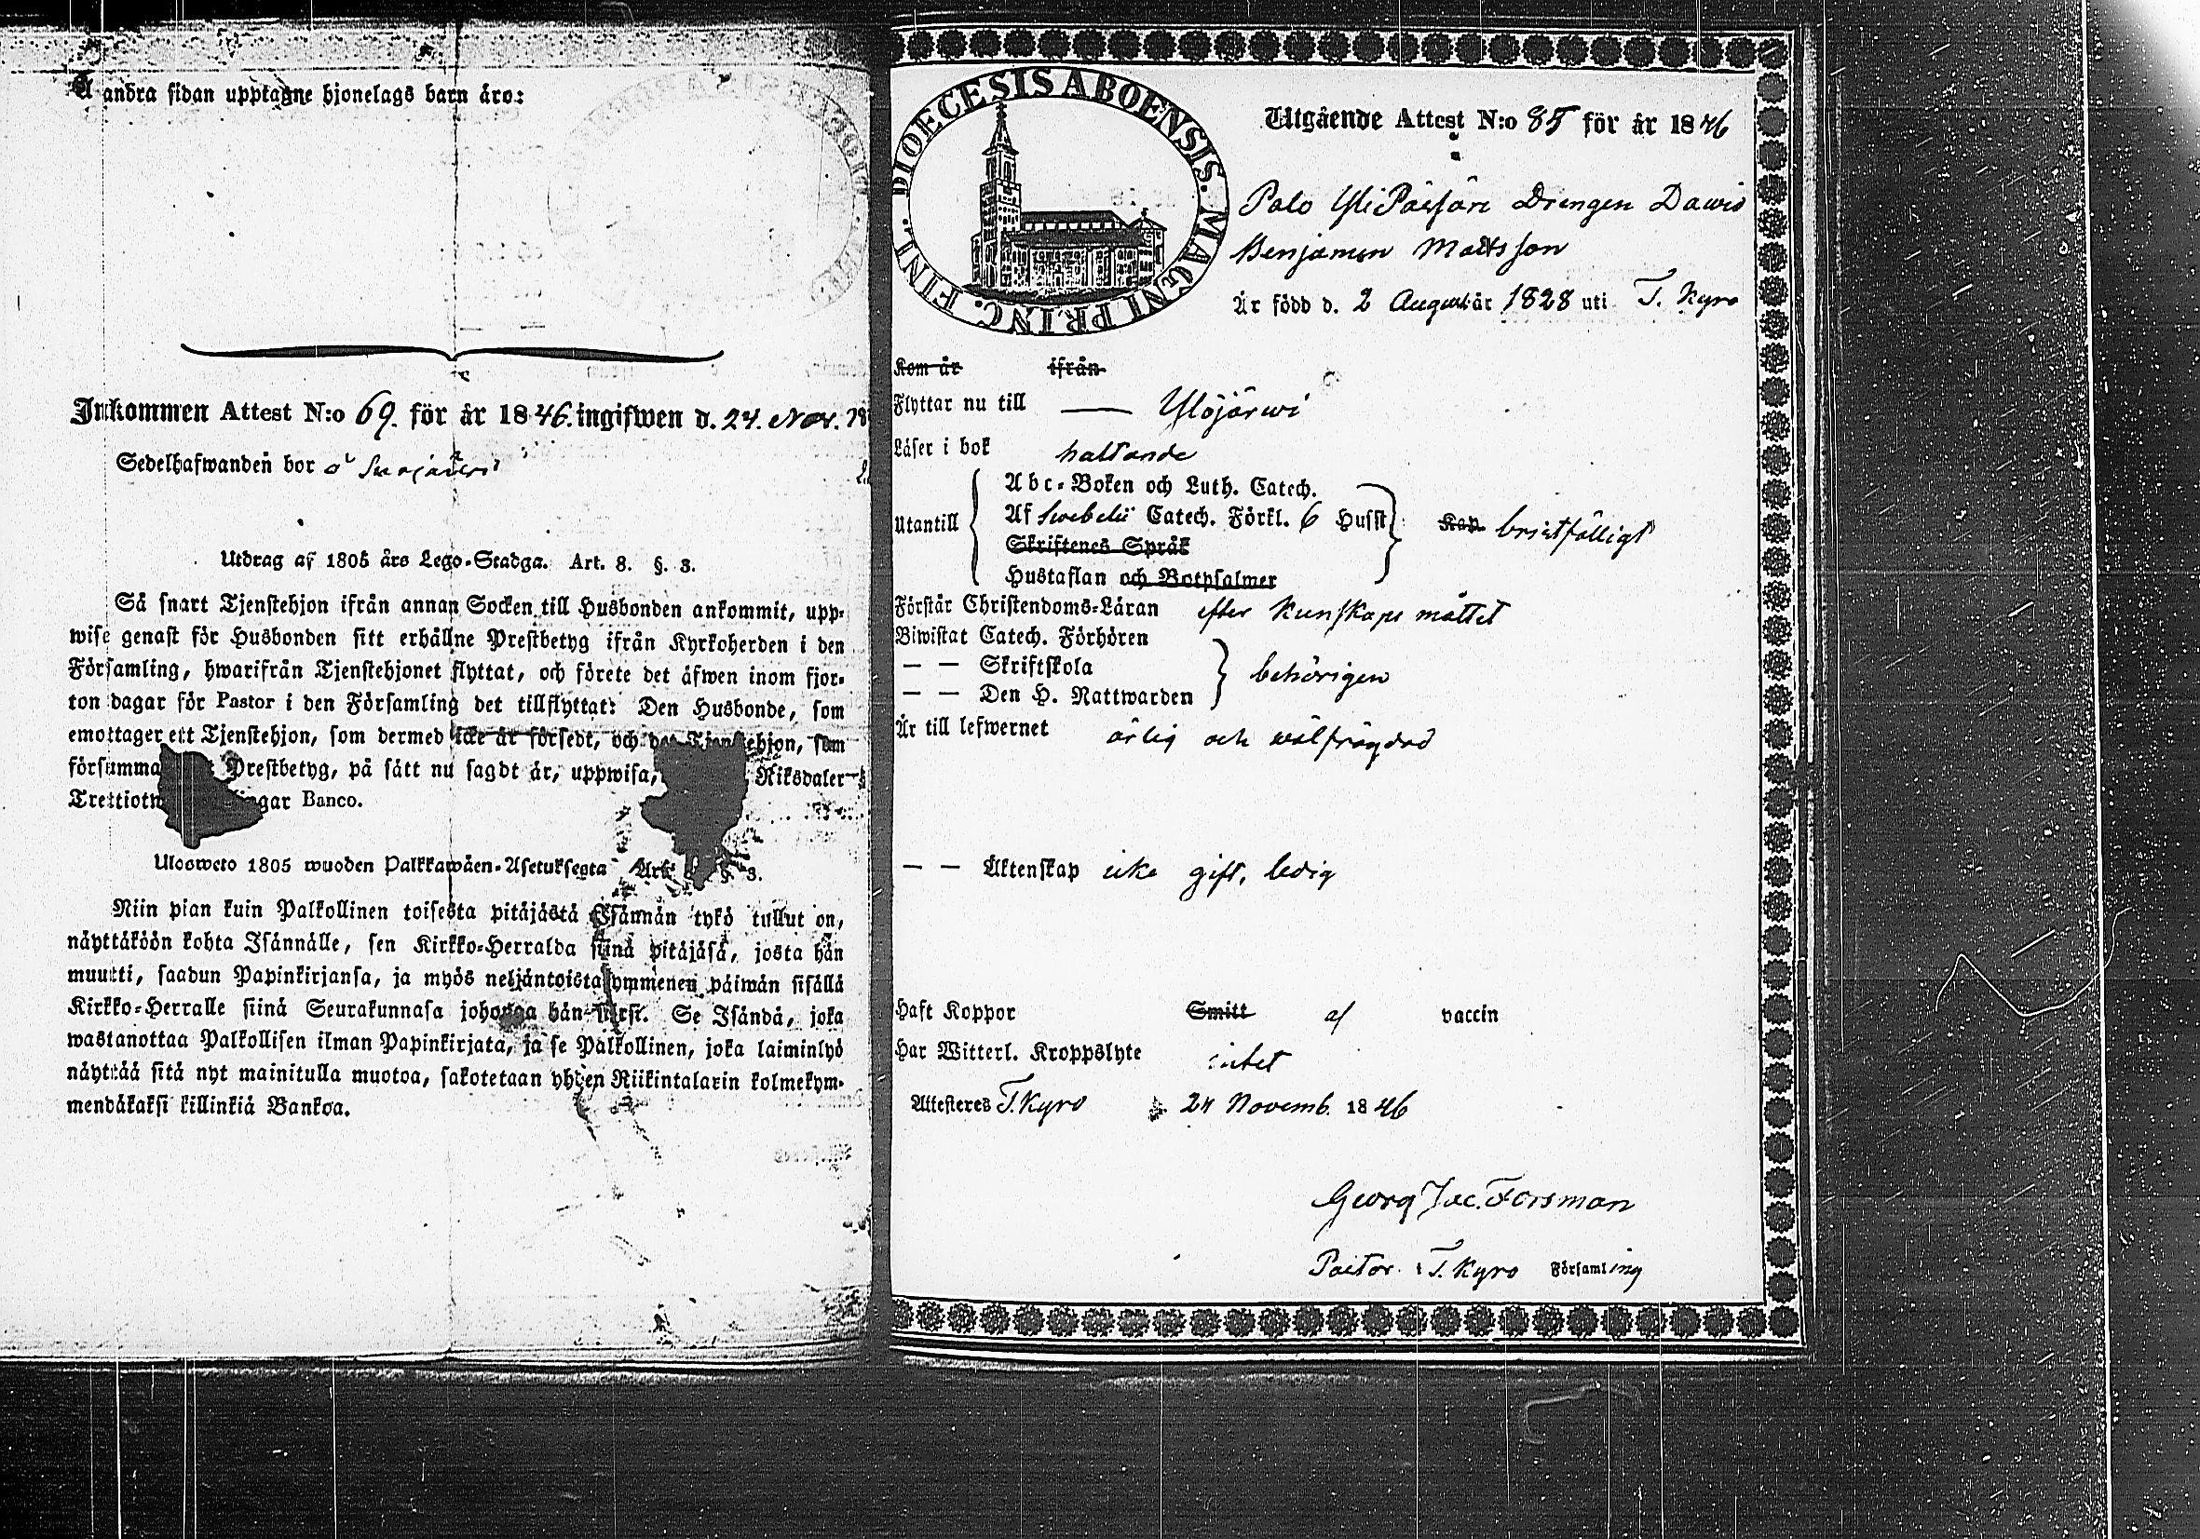 Å andra sidan upptagne hjonelags barn äro:
Inkommen Attest N:o 69. för år 1846. ingifwen d. 24. Nov. 18
Sedelhafwanden bor å
Utdrag af 1805 års Lego-Stadga. Art. 8. §. 3.
Så snart Tjenstehjon ifrån annan Socken till Husbonden ankommit, upp-
wise genast för Husbonden sitt erhållne Prestbetyg ifrån Kyrkoherden i den
Församling, hwarifrån Tjenstehjonet flyttat, och förete det äfwen inom fjor-
ton dagar för Pastor i den Församling det tillflyttat: Den Husbonde, som
emottager ett Tjenstehjon, som dermed icke är försedt, och det Tjenstehjon, som
försumma Prestbetyg, på sätt nu sagdt är, uppwisa, Riksdaler
Trettiotw lingar Banco.
Ulosweto 1805 wuoden Palkkawäen-Asetuksesta Art. §. 3.
Niin pian kuin Palkollinen toisesta pitäjästä Isännän tykö tullut on,
näyttäköön kohta Isännälle, sen Kirkko-Herralda siinä pitäjäsä, josta hän
muutti, saadun Papinkirjansa, ja myös neljäntoistakymmenen päiwän sisällä
Kirkko-Herralle siinä Seurakunnasa johonga hän siirsi. Se Isändä, joka
wastanottaa Palkollisen ilman Papinkirjata, ja se Palkollinen, joka laiminlyö
näyttää sitä nyt mainitulla muotoa, sakotetaan yhden Riikintalarin kolmekym-
mendäkaksi killinkiä Bankoa.
DIOECESIS ABOENSIS. MAGNI PRINC. FINL.
Utgående Attest N:o 85 för år 1846
Palo Yli Päsjäri Drengen Dawid
Benjamin Mattsson
Är född d. 2 Augusti år 1828 uti T. Kyro
Kom år ifrån
Flyttar nu till — Ylöjärwi
Läser i bok haltande
Utantill Abc-Boken och Luth. Catech.
Af Swebelii Catech. Förkl. 6 Husst Kap. bristfälligt
Skriftenes Språk
Hustaflan och Botpsalmer
Förstår Christendoms-Läran efter kunskaps måttet
Biwistat Catech. Förhören
— — Skriftskola behörigen
— — Den H. Nattwarden
Är till lefwernet ärlig och wälfrägdad
— — Äktenskap icke gift, ledig
Haft Koppor Smitt af vaccin
Har Witterl. Kroppslyte intet
Attesteres T. Kyro 24 Novemb. 1846
Georg Jac. Forsman
Pastor i T. Kyro Församling